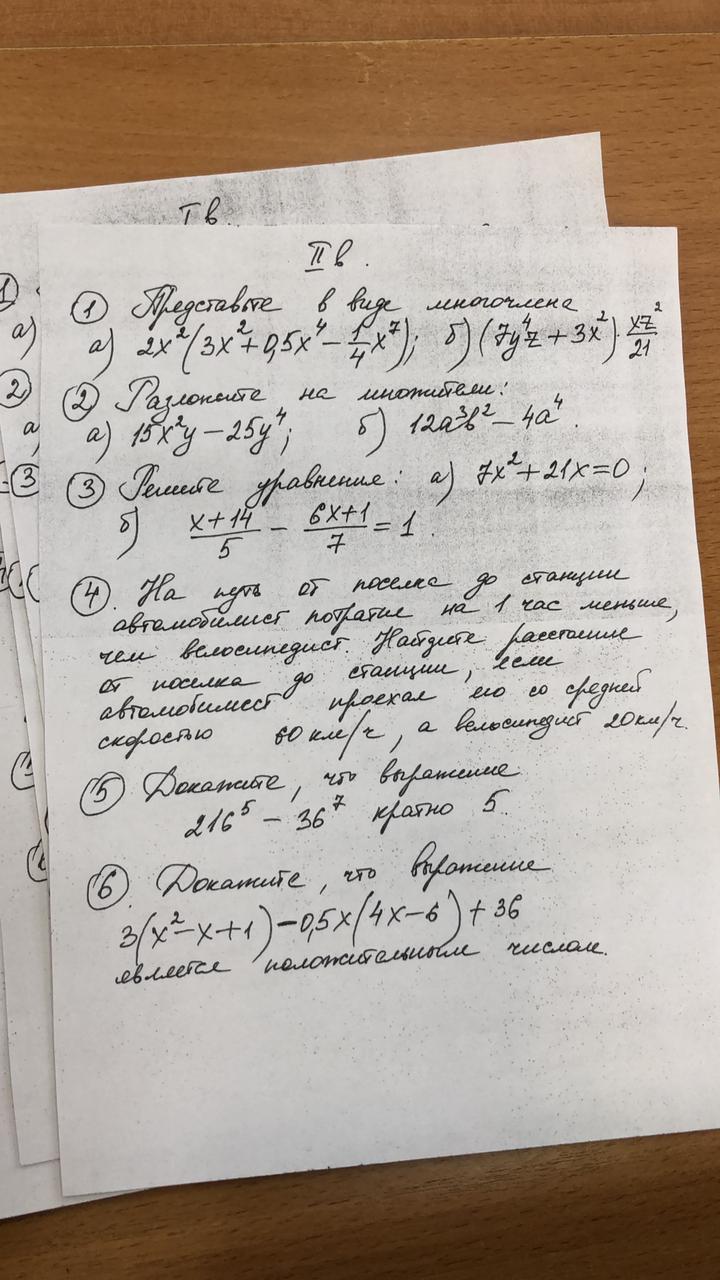 I в.
II в.
① Представьте в виде многочлена
а) 2x²(3x²+0,5x⁴−1/4x⁷); б) (7y⁴z+3x²)·xz²/21
② Разложите на множители:
а) 15x²y−25y⁴; б) 12a³b²−4a⁴.
③ Решите уравнение: а) 7x²+21x=0;
б) (x+14)/5 − (6x+1)/7 = 1.
④. На путь от поселка до станции
автомобилист потратил на 1 час меньше,
чем велосипедист. Найдите расстояние
от поселка до станции, если
автомобилист проехал его со средней
скоростью 60 км/ч, а велосипедист 20 км/ч.
⑤ Докажите, что выражение
216⁵ − 36⁷ кратно 5.
⑥. Докажите, что выражение
3(x²−x+1)−0,5x(4x−6)+36
является положительным числом.
1
а)
2
а
3